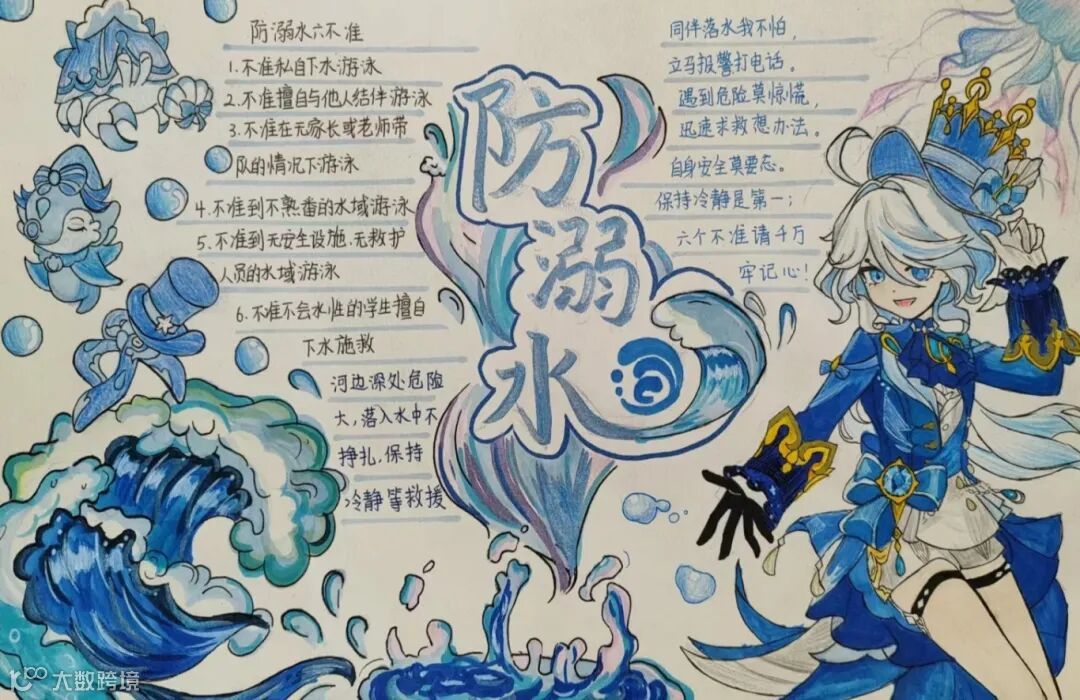 防溺水六不准
1.不准私自下水游泳
2.不准擅自与他人结伴游泳
3.不准在无家长或老师带
队的情况下游泳
4.不准到不熟番的水域游泳
5.不准到无安全设施、无救护
人员的水域游泳
6.不准不会水性的学生擅自
下水施救
河边深处危险
大,落入水中不
挣扎,保持
冷静等救援
防
溺
水
同伴落水我不怕,
立马报警打电话。
遇到危险莫惊慌,
迅速求救想办法。
自身安全莫要忘。
保持冷静是第一;
六个不准请千万
牢记心!
大数跨境